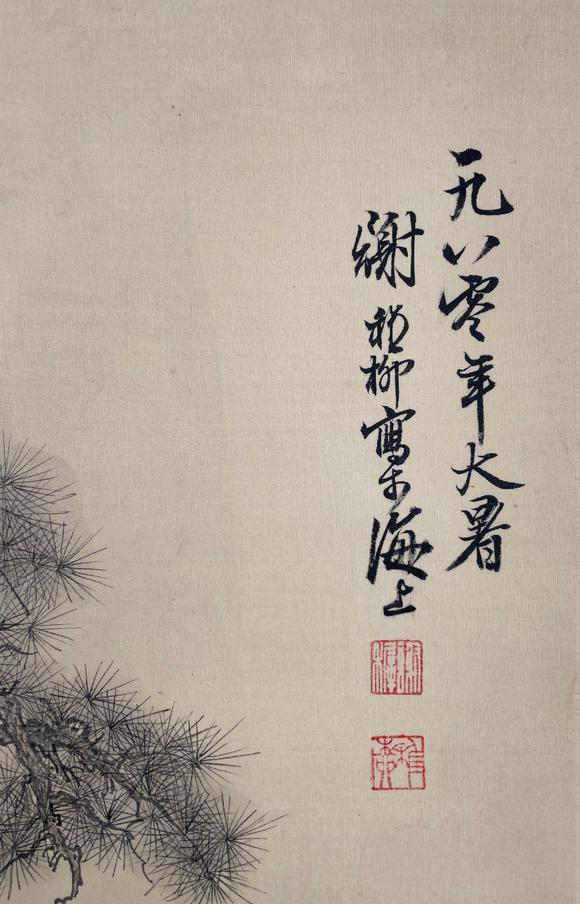 一九八零年大暑
謝稚柳寫於海上